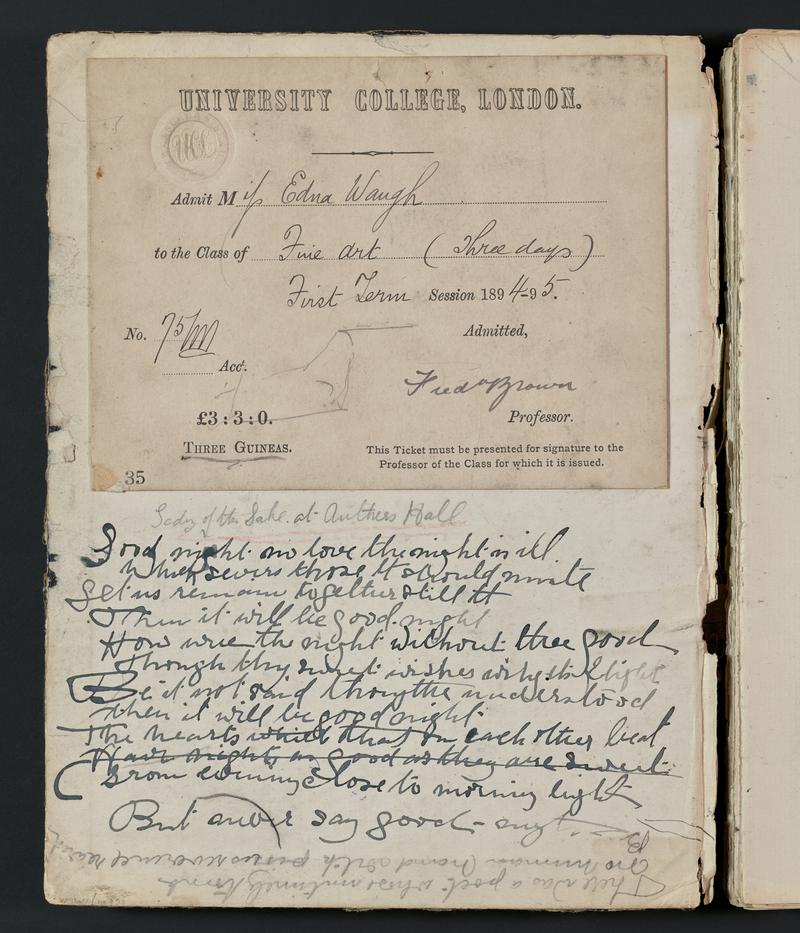 UNIVERSITY COLLEGE, LONDON.
UCL
Admit Miss Edna Waugh
to the Class of Fine Art (Three days)
First Term Session 1894-95.
No. 75
Admitted,
Acct.
Fredk Brown
£3:3:0. Professor.
THREE GUINEAS.
This Ticket must be presented for signature to the
Professor of the Class for which it is issued.
35
Lady of the Lake. at Arthurs Hall
Good night no love the night is ill
Which severs those it should unite
Let us remain together still
Then it will be good night
How were the night without thee good
Though thy sweet wishes wing its flight
Be it not said thought understood
then it will be good night
The hearts that on each other beat
Have nights as good as they are sweet
From evening close to morning light
But never say good-night
There was a poet whose untimely tomb
No human hand with pious reverence reared